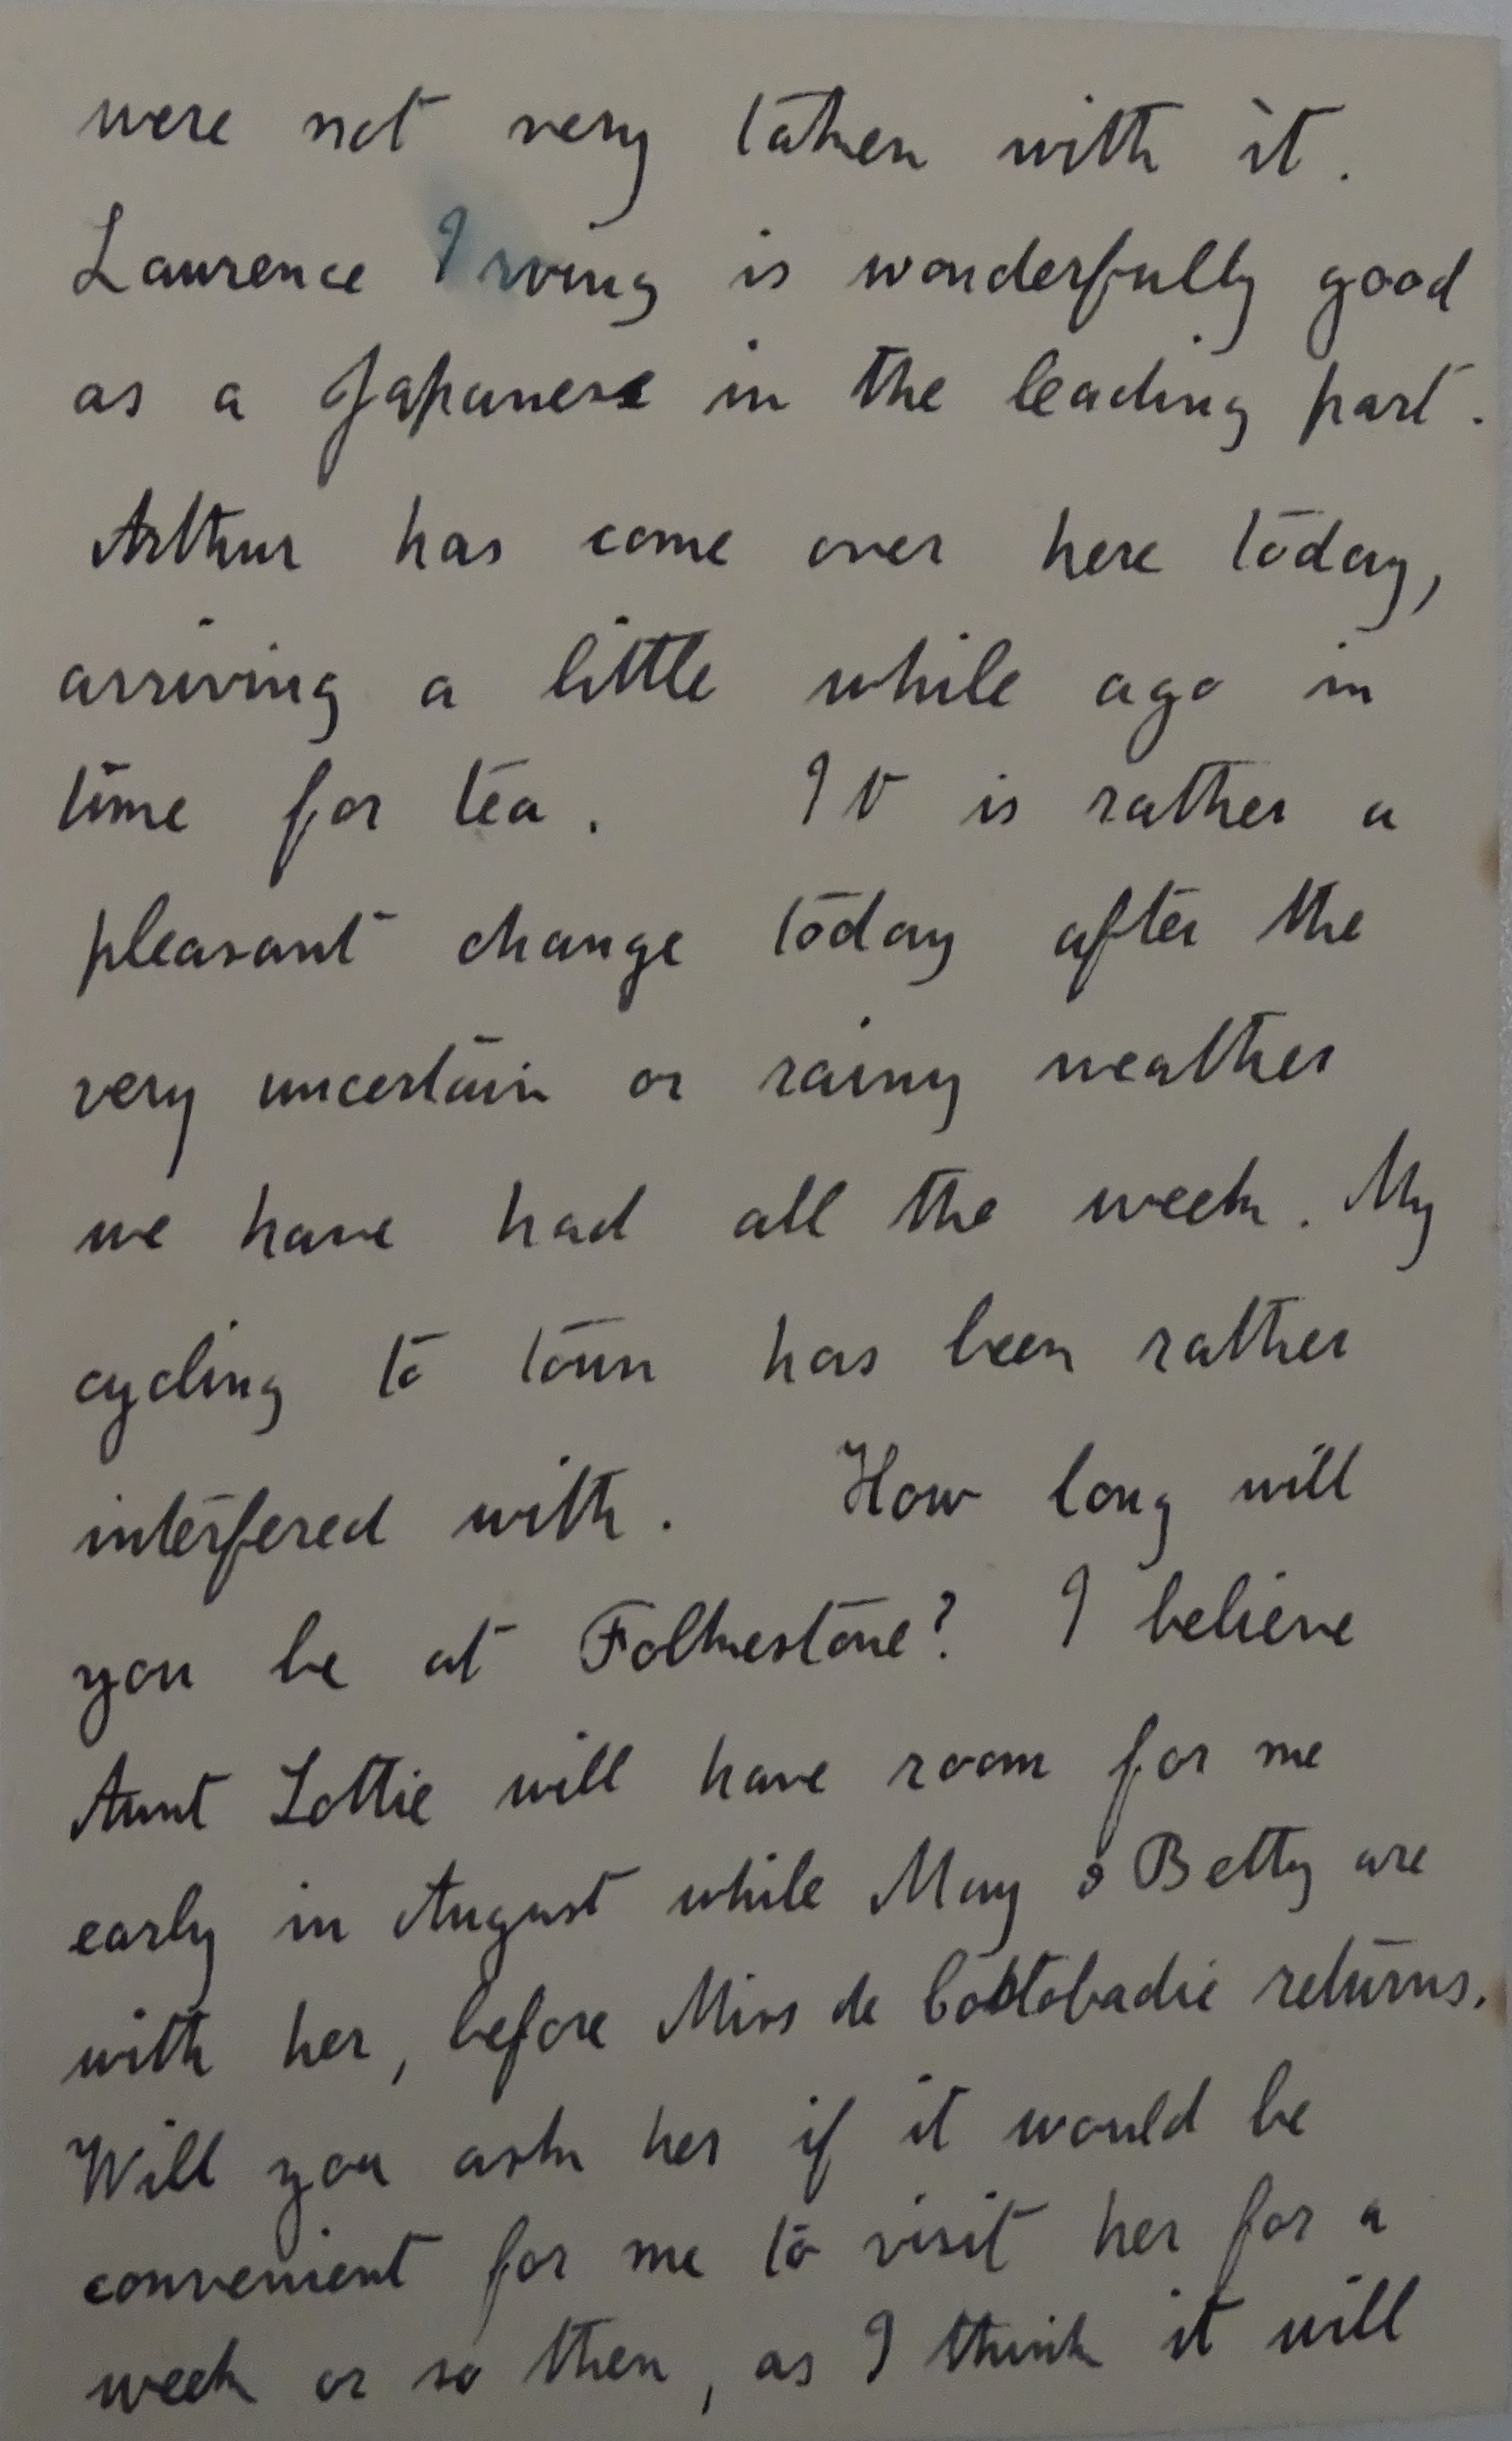 were not very taken with it.
Laurence Irving is wonderfully good
as a Japanese in the leading part.
Arthur has come over here today,
arriving a little while ago in
time for tea. It is rather a
pleasant change today after the
very uncertain or rainy weather
we have had all the week. My
cycling to town has been rather
interfered with. How long will
you be at Folkestone? I believe
Aunt Lottie will have room for me
early in August while May & Betty are
with her, before Miss de returns.
Will you ask her if it would be
convenient for me to visit her for a
week or so then, as I think it will